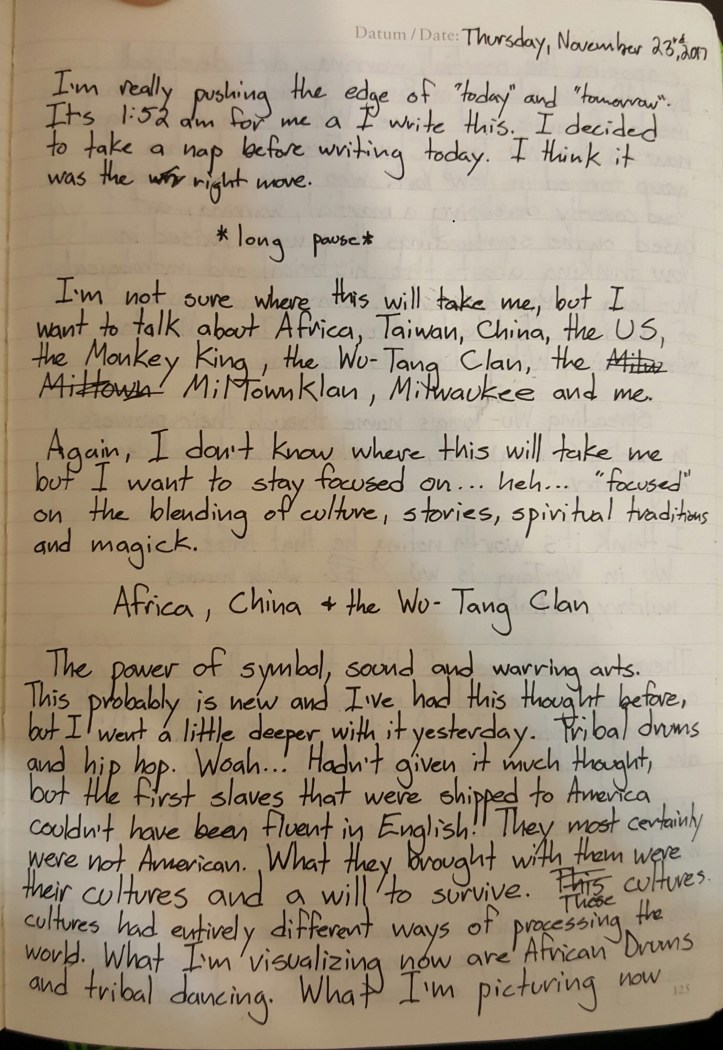 Datum / Date: Thursday, November 23rd, 2017
I'm really pushing the edge of "today" and "tomorrow".
It's 1:52 am for me a I write this. I decided
to take a nap before writing today. I think it
was the right move.
*long pause*
I'm not sure where this will take me, but I
want to talk about Africa, Taiwan, China, the US,
the Monkey King, the Wu-Tang Clan, the Milw
Miltown MilTownKlan, Milwaukee and me.
Again, I don't know where this will take me
but I want to stay focused on... heh... "focused"
on the blending of culture, stories, spiritual traditions
and magick.
Africa, China + the Wu-Tang Clan
The power of symbol, sound and warring arts.
This probably is new and I've had this thought before,
but I went a little deeper with it yesterday. Tribal drums
and hip hop. Woah... Hadn't given it much thought,
but the first slaves that were shipped to America
couldn't have been fluent in English!! They most certainly
were not American. What they brought with them were
their cultures and a will to survive. This cultures.
These
cultures had entirely different ways of processing the
world. What I'm visualizing now are African Drums
and tribal dancing. What I'm picturing now
125